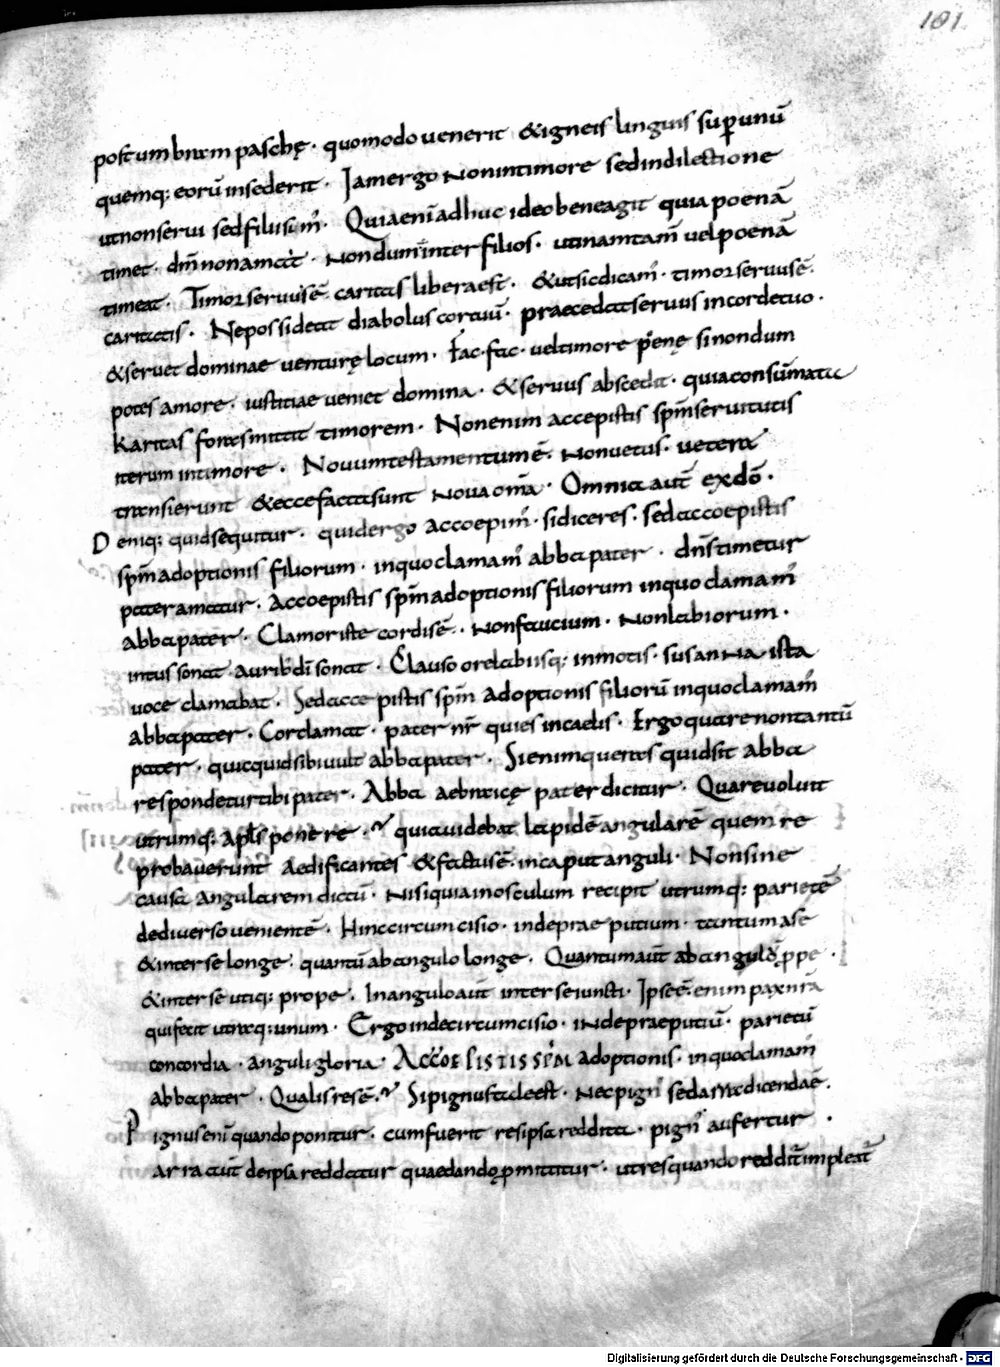 181
post umbram paschę · quomodo uenerit & igneis linguis sup unū
quemq: eorū insederit · Jam ergo non in timore sed in dilectione
ut non serui sed filii sim᾽ · Quia enī adhuc ideo bene agit quia poenā
timet · dm̄ non amat · nondum inter filios · utinam tam̄ uel poenā
timeat · Timor seruus ē caritas libera est · & ut sic dicam᾽ · timor seruus ē
caritatis · Ne possideat diabolus cor tuū · praecedat seruus in corde tuo ·
& seruet dominae uenturę locum · Fac · fac · uel timore poenę si nondum
potes amore · iustitiae ueniet domina · & seruus abscedit · quia consūmata
karitas foras mittit timorem · Non enim accepistis spm̄ seruitutis
iterum in timore · Nouum testamentum ē · non uetus · uetera
transierunt & ecce facta sunt noua om̄a · Omnia aut̄ ex dō ·
Deniq: quid sequitur · quid ergo accoepim᾽ · si diceres · sed accoepistis
spm̄ adoptionis filiorum · in quo clamam᾽ abba pater · dn̄s timetur
pater amatur · Accoepistis spm̄ adoptionis filiorum in quo clamam᾽
abba pater · Clamor iste cordis ē · non faucium · non labiorum ·
intus sonat · aurib᾽ dī sonat · Clauso ore labiisq: inmotis · susanna ista
uoce clamabat · Sed acce pistis spm̄ adoptionis filiorū in quo clamam᾽
abba pater · Cor clamat · pater nr̄ qui es in caelis · Ergo quare non tantū
pater · quid quid sibi uult abba pater · Si enim queras quid sit abba
respondetur tibi pater · Abba aebraicę pater dicitur · Quare uoluit
utrumq: apłs ponere · quia uidebat lapidē angularē quem re
probauerunt aedificantes & factus ē in caput anguli · Non sine
causa angularem dictū · nisi quia in osculum recipit utrumq: parietē
de diuerso uenientē · Hinc circumcisio · inde praeputium · tantum a se
& inter se longe · quantū ab angulo longe · Quantum aut̄ ab angulo prope ·
& inter se utiq: prope · In angulo aut̄ inter se iuncti · Ipse ē enim pax nr̄a
qui fecit utraq: unum · Ergo inde circumcisio · inde praeputiū · parietū
concordia · anguli gloria · Accoepistis spm̄ adoptionis · in quo clamam᾽
abba pater · Qualis res ē · Si pignus tale est · nec pign᾽ sed arra dicenda ē ·
Pignus enī quando ponitur · cum fuerit res ipsa reddita · pign᾽ aufertur ·
arra aut̄ de ipsa re datur quae danda pmittitur · ut res quando redditur impleat᾽
Digitalisierung gefördert durch die Deutsche Forschungsgemeinschaft - DFG